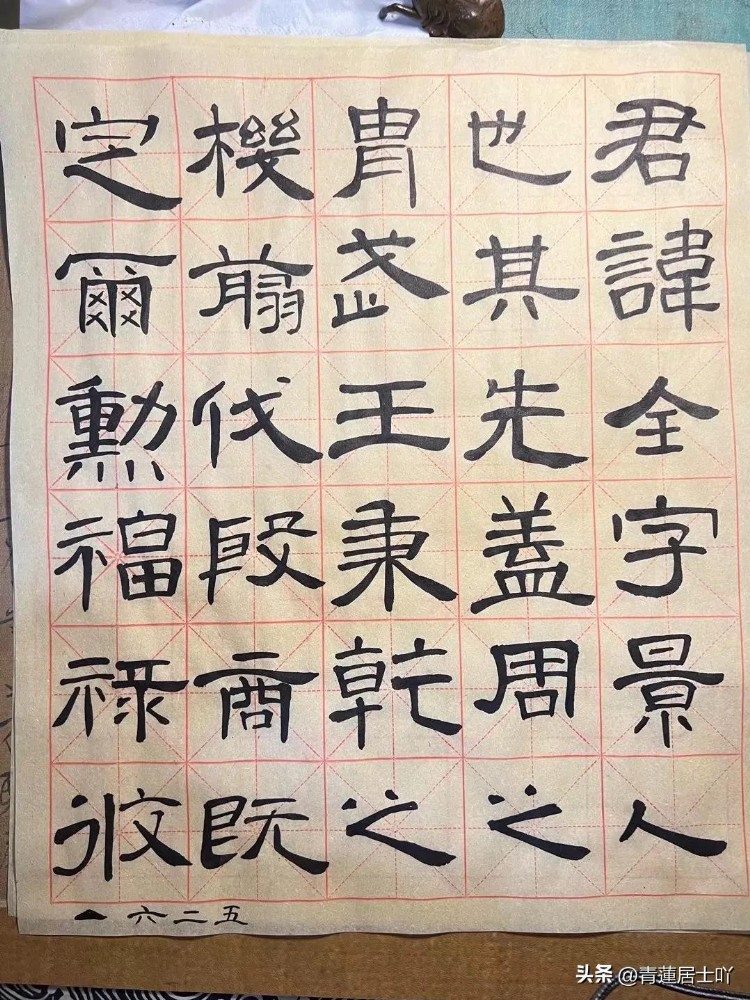 君諱全字景人
也其先盖周之
胄武王秉乾之
機翦伐殷商既
定爾勳福祿攸
六二五
头条 @青蓮居士吖